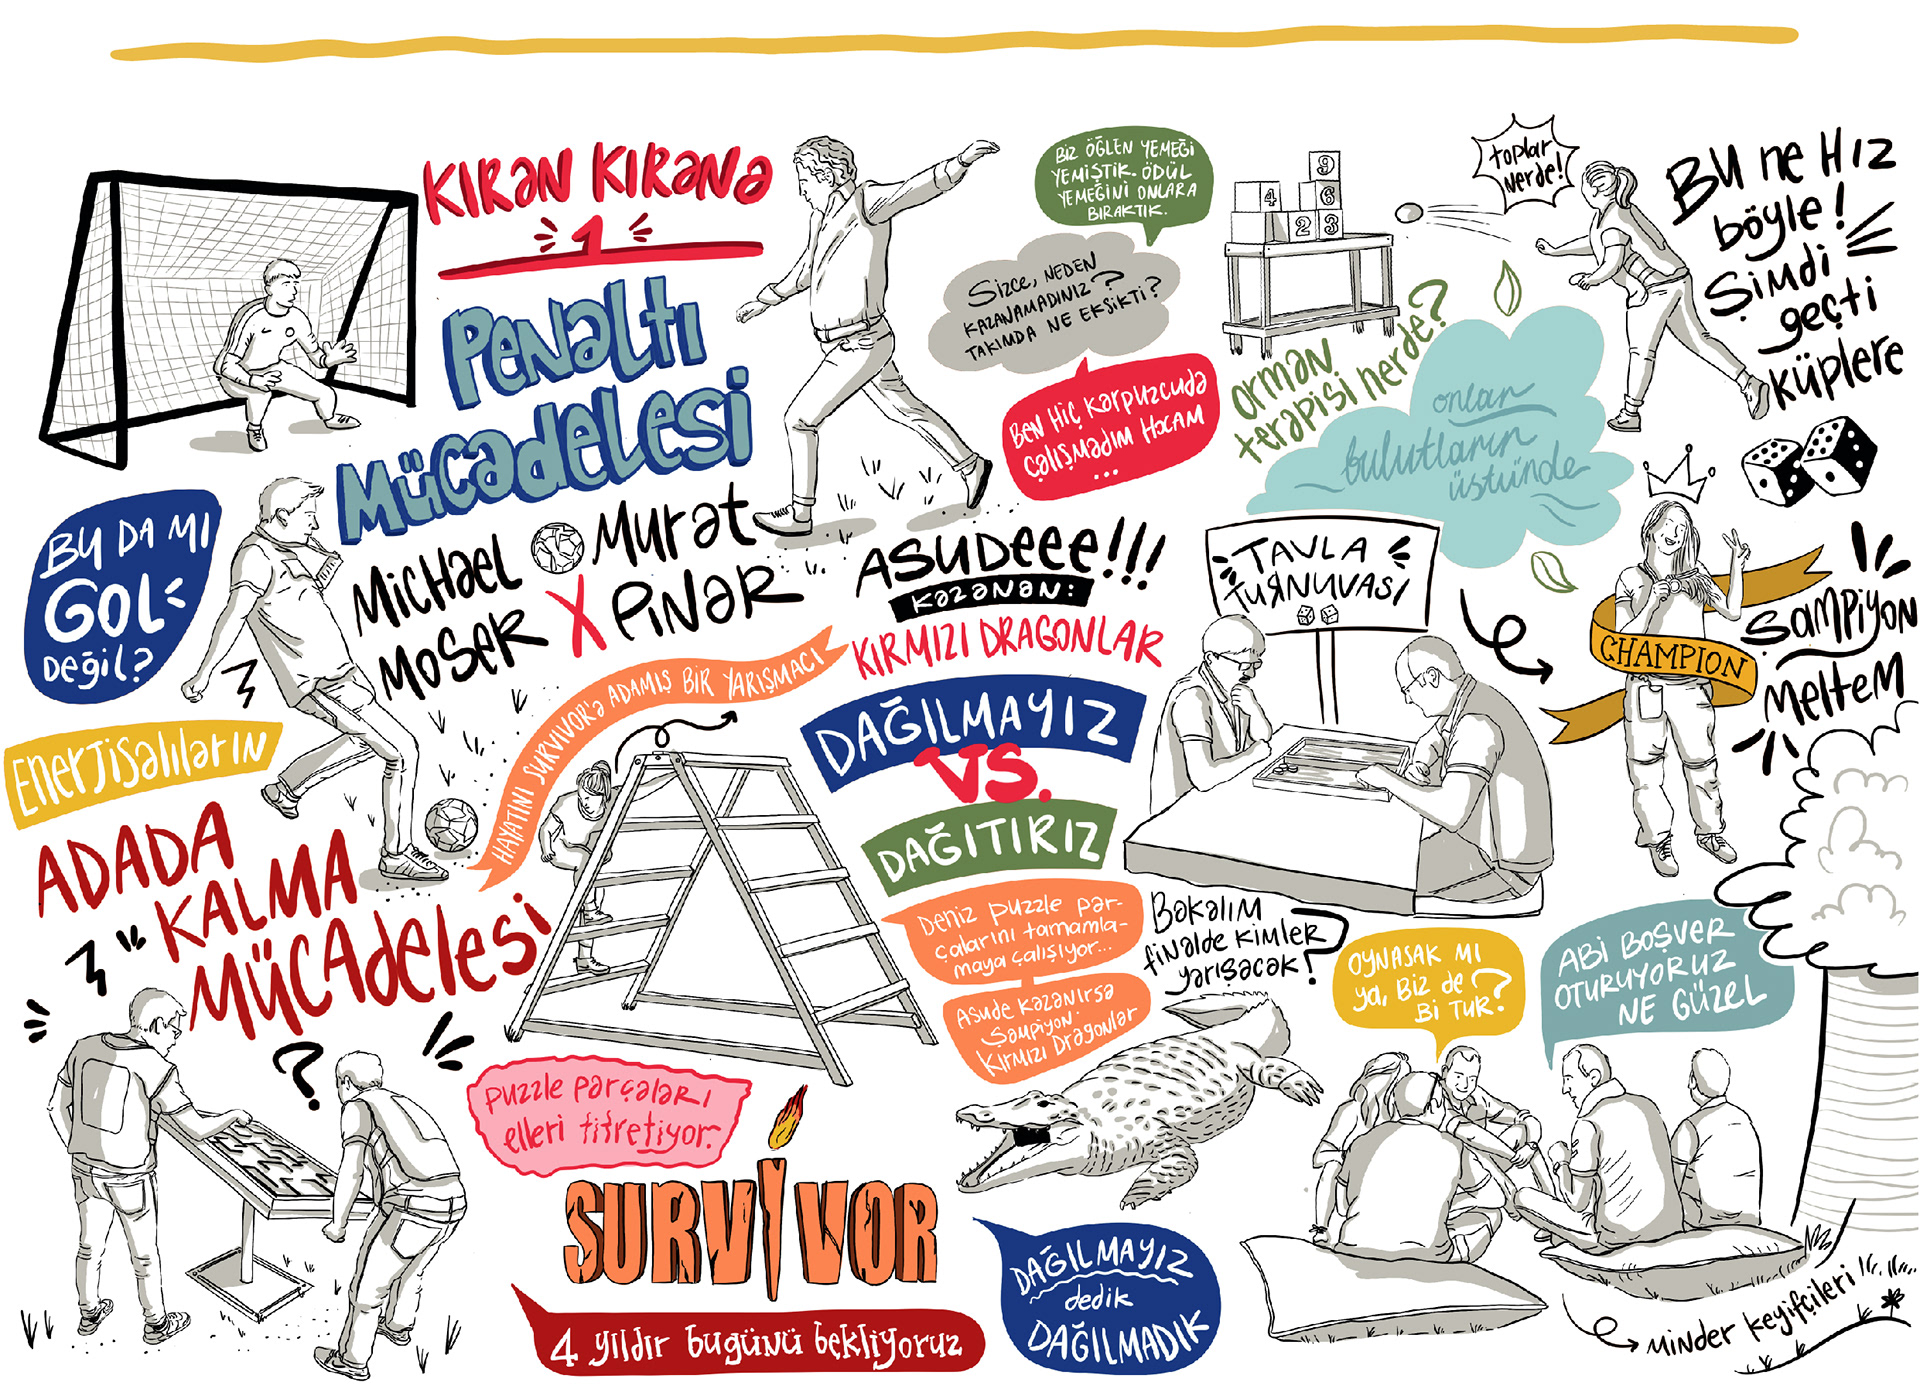 KIRAN KIRANA
1
PENALTI
MÜCADELESİ
MICHAEL
MOSER
X
MURAT
PINAR
BİZ ÖĞLEN YEMEĞİ
YEMİŞTİK. ÖDÜL
YEMEĞİNİ ONLARA
BIRAKTIK.
Sizce, NEDEN
KAZANAMADINIZ?
TAKIMDA NE EKSİKTİ?
BEN HİÇ KARPUZCUDA
ÇALIŞMADIM HOCAM
...
9
4 6
2 3
toplar
nerde!
BU NE HIZ
böyle!
Şimdi
geçti
KÜPLERE
ORMAN
terapisi nerde?
onlar
bulutların
üstünde
BU DA MI
GOL
DEĞİL?
ASUDEEE!!!
KAZANAN:
KIRMIZI DRAGONLAR
TAVLA
TURNUVASI
CHAMPION
ŞAMPİYON
MELTEM
ENERJİSALILARIN
ADADA
KALMA
MÜCADELESİ
HAYATINI SURVIVOR'A ADAMIŞ BİR YARIŞMACI
DAĞILMAYIZ
VS.
DAĞITIRIZ
DENİZ PUZZLE PAR-
ÇALARINI TAMAMLA-
MAYA ÇALIŞIYOR...
ASUDE KAZANIRSA
ŞAMPİYON:
KIRMIZI DRAGONLAR
BAKALIM
FİNALDE KİMLER
YARIŞACAK?
OYNASAK MI
YA, BİZ DE
Bİ TUR?
ABİ BOŞVER
OTURUYORUZ
NE GÜZEL
?
PUZZLE PARÇALARI
elleri titretiyor.
SURVIVOR
4 yıldır bugünü bekliyoruz
DAĞILMAYIZ
dedik
DAĞILMADIK
MİNDER KEYİFÇİLERİ